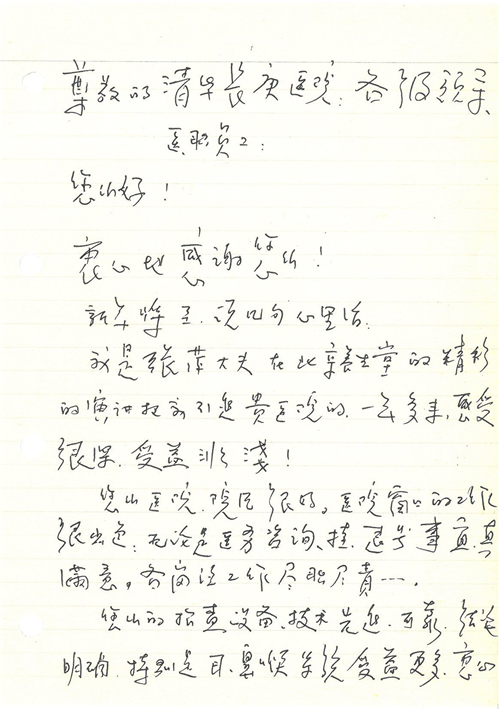 尊敬的清华长庚医院:各级领导、
医职员工:
您们好!
衷心地感谢您们!
新年将至.说几句心里话:
我是张萍大夫在北京养生堂的精彩
的演讲把我引进贵医院的.一年多来,感受
很深.受益非浅!
您们医院.院风很好.医院窗口的工作
很出色:无论是医务咨询、挂、退号事宜具
满意,各岗位工作尽职尽责….
您们的检查设备、技术先进.可靠.结论
明确.特别是耳.鼻喉系统受益更多.衷心